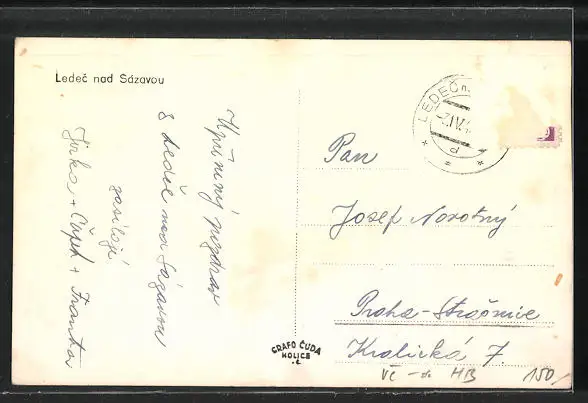 Ledeč nad Sázavou
Upřímný pozdrav
z Ledče nad Sázavou
zasílají
Jirka + Čápek + Franta
LEDEČ n.
Pan
Josef Novotný
Praha-Strašnice
Kralická 7.
GRAFO ČUDA
HOLICE
Vč
HB
150